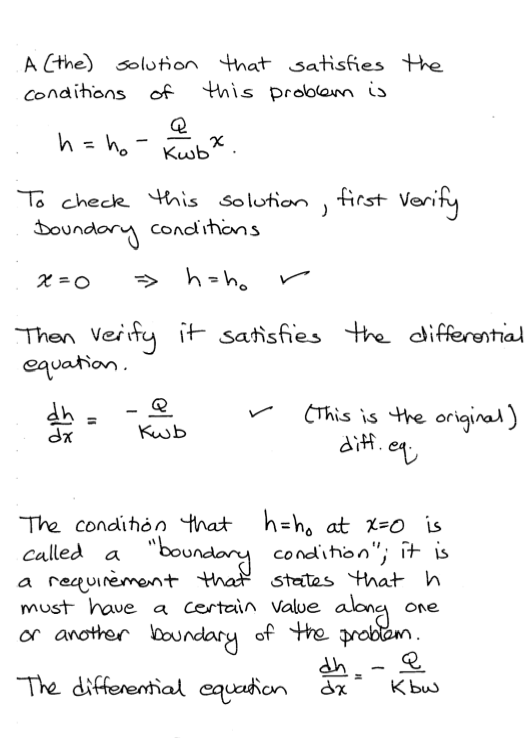 A (the) solution that satisfies the
conditions of this problem is
h = h₀ - Q/Kwb x.
To check this solution, first verify
boundary conditions
x=0 ⇒ h=h₀ ✓
Then verify it satisfies the differential
equation.
dh/dx = - Q/Kwb ✓ (This is the original)
diff. eq.
The condition that h=h₀ at x=0 is
called a "boundary condition"; it is
a requirement that states that h
must have a certain value along one
or another boundary of the problem.
The differential equation dh/dx = - Q/Kbw